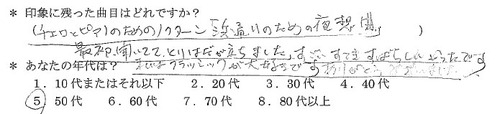 * 印象に残った曲目はどれですか?
(チェロとピアノのためのノクターン 浜通りのための夜想曲 )
最初聞いてて、とりはだが立ちました。すごい すてき すばらしい よかったです
* あなたの年代は? 私はクラッシックが大好きです ありがとうございました
1. 10代またはそれ以下 2. 20代 3. 30代 4. 40代
5 50代 6. 60代 7. 70代 8. 80代以上